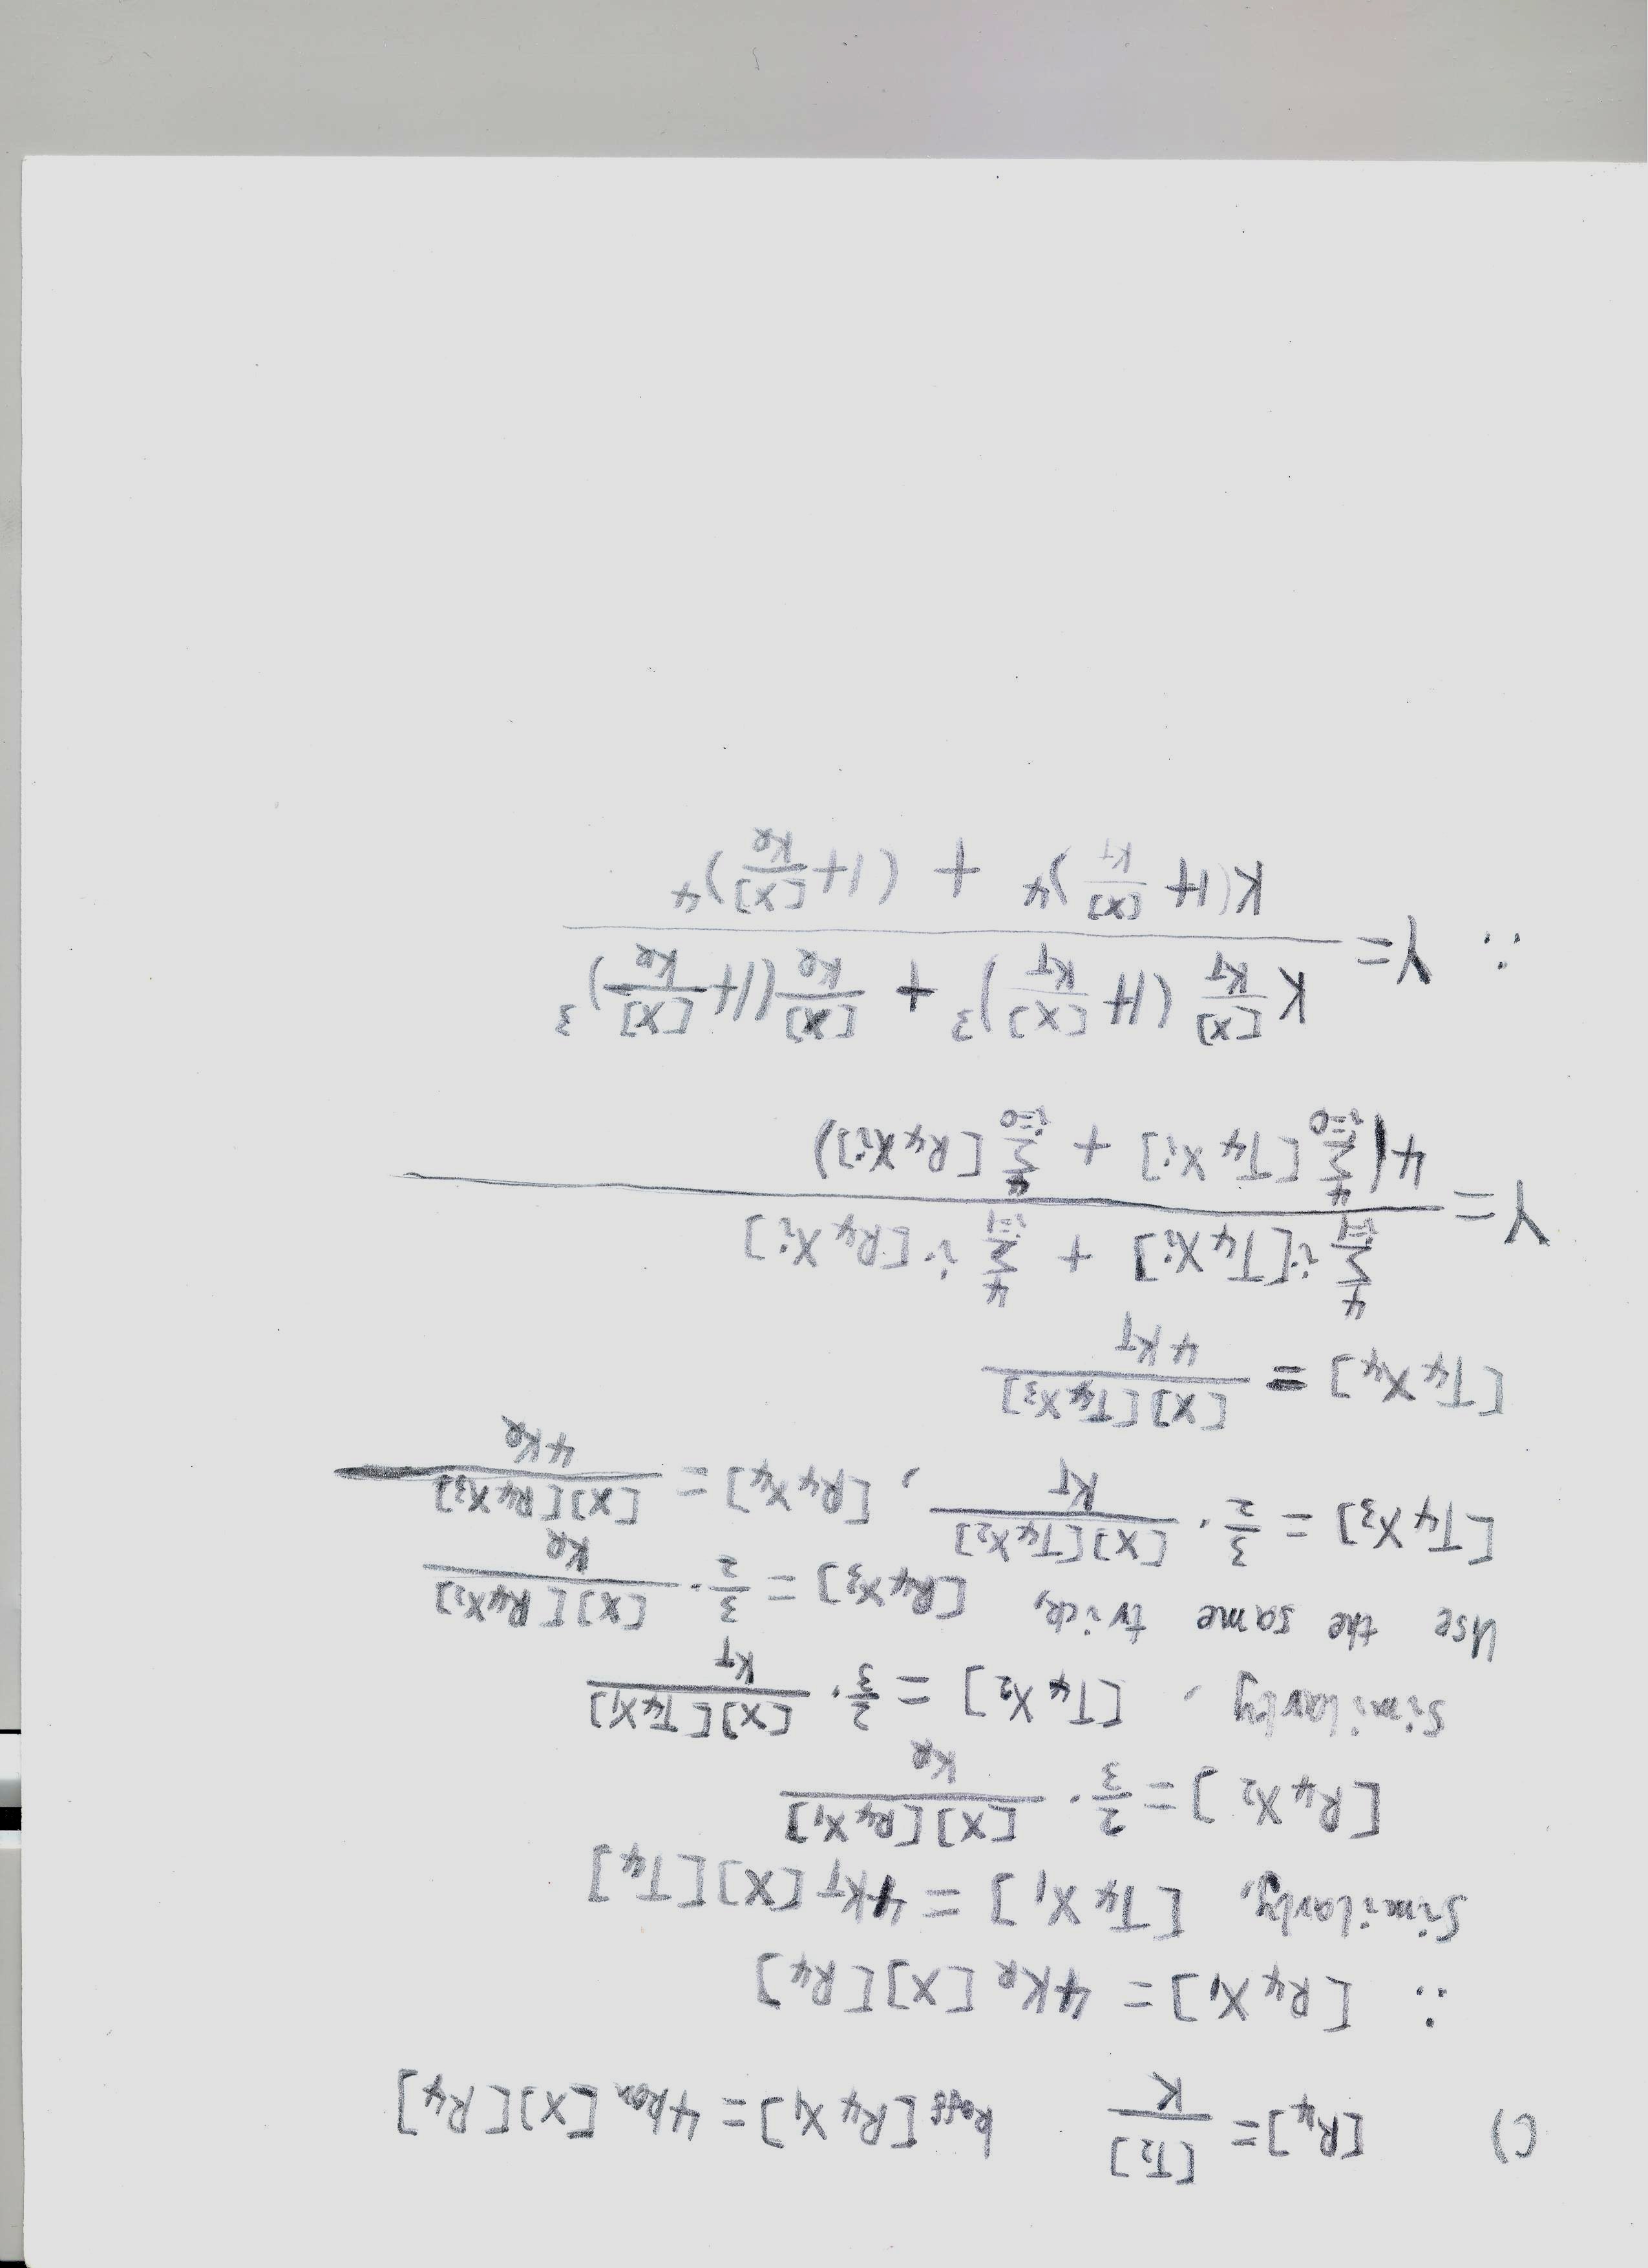 C) [R₄] = [T₂]/K  k_off [R₄X₁] = 4k_on [X][R₄]
∴ [R₄X₁] = 4K_R [X][R₄]
Similarly, [T₄X₁] = 4K_T [X][T₄]
[R₄X₂] = 2/3 · [X][R₄X₁]/K_R
Similarly, [T₄X₂] = 2/3 · [X][T₄X₁]/K_T
Use the same trick, [R₄X₃] = 3/2 · [X][R₄X₂]/K_R
[T₄X₃] = 3/2 · [X][T₄X₂]/K_T , [R₄X₄] = [X][R₄X₃]/4K_R
[T₄X₄] = [X][T₄X₃]/4K_T
Y = (∑_{i=1}^{4} i·[T₄Xᵢ] + ∑_{i=1}^{4} i·[R₄Xᵢ]) / 4(∑_{i=0}^{4} [T₄Xᵢ] + ∑_{i=0}^{4} [R₄Xᵢ])
∴ Y = (K [X]/K_T (1+[X]/K_T)³ + [X]/K_R (1+[X]/K_R)³) / (K(1+[X]/K_T)⁴ + (1+[X]/K_R)⁴)